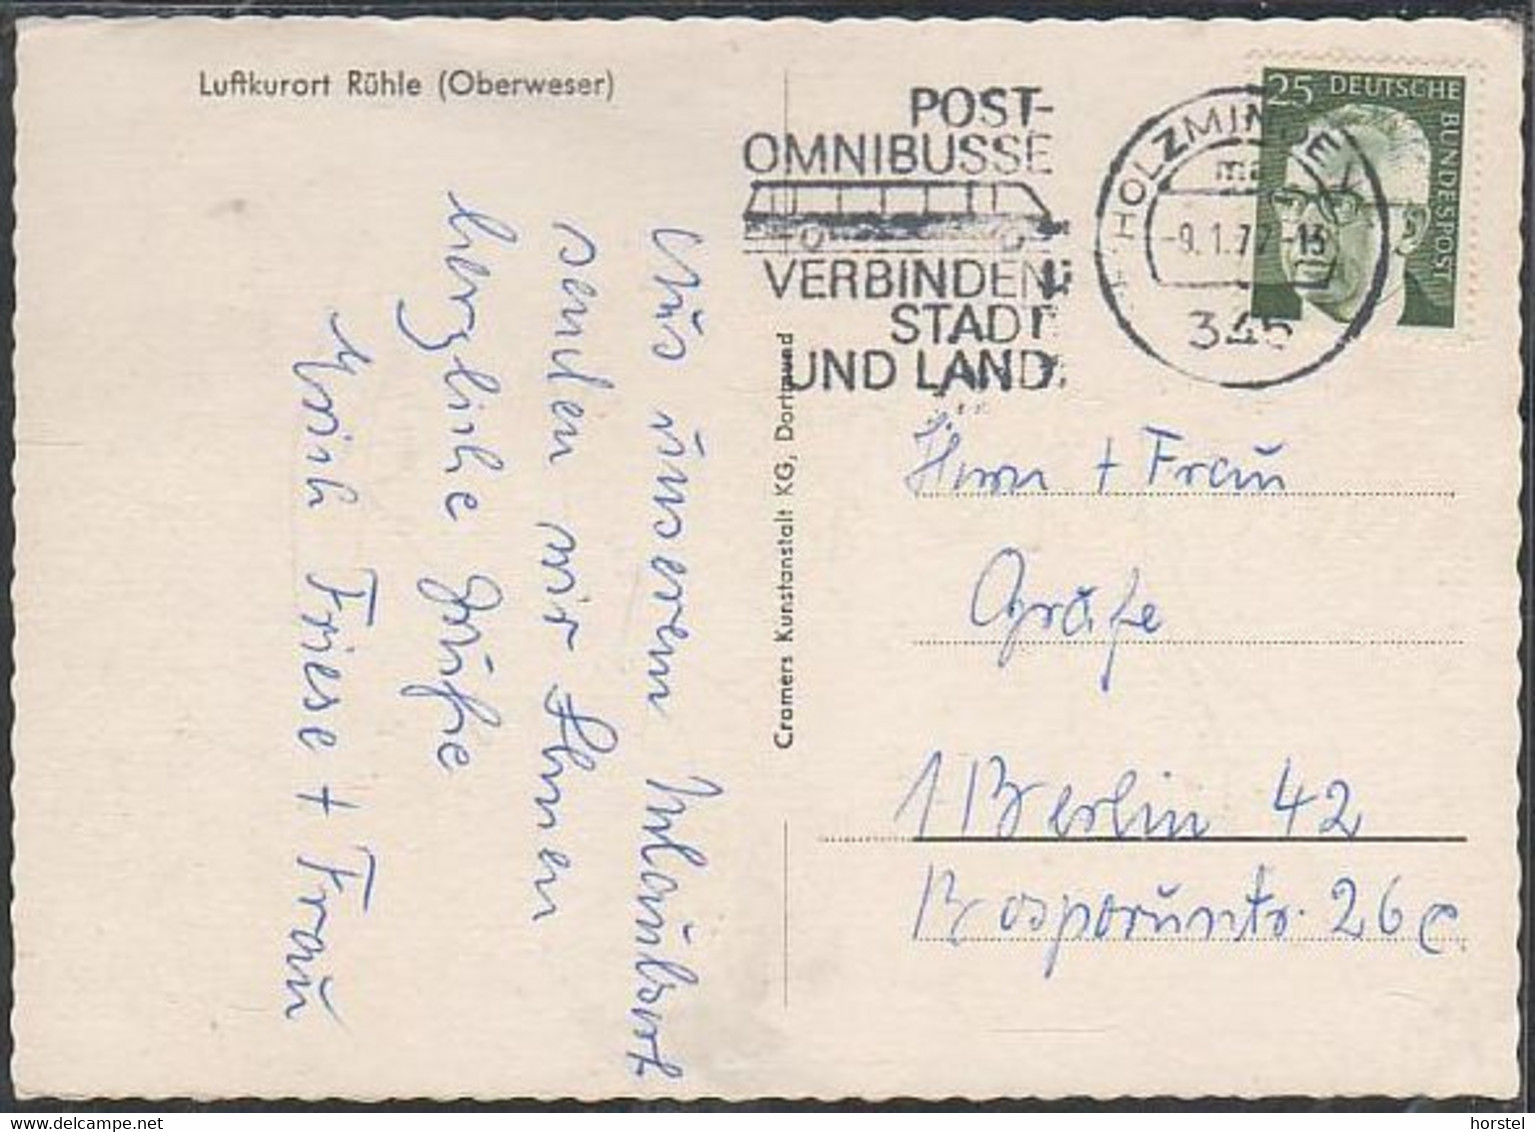 Luftkurort Rühle (Oberweser)
POST-
OMNIBUSSE
VERBINDEN
STADT
UND LAND
HOLZMINDEN
-9.1.72-13
345
25 DEUTSCHE
BUNDESPOST
Aus unserem Urlaubsort
senden wir Ihnen
herzliche Grüße
Friese + Frau
Cramers Kunstanstalt KG, Dortmund
Herrn + Frau
Gräfe
1 Berlin 42
26c
horstel